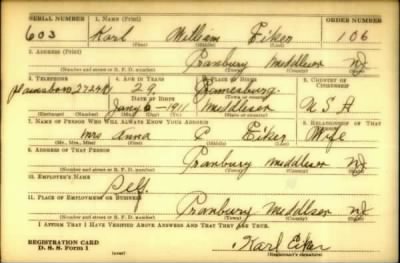 SERIAL NUMBER 1. NAME (Print) ORDER NUMBER
603 Karl William Eiker 106
(First) (Middle) (Last)
2. ADDRESS (Print)
Cranbury Middlesex NJ
(Number and street or R. F. D. number) (Town) (County) (State)
3. TELEPHONE 4. AGE IN YEARS 5. PLACE OF BIRTH 6. COUNTRY OF CITIZENSHIP
Plainsboro 29 Jamesburg
DATE OF BIRTH
Jany 6-1911 Middlesex U S A
(Exchange) (Number) (Mo.) (Day) (Yr.) (State or country)
7. NAME OF PERSON WHO WILL ALWAYS KNOW YOUR ADDRESS 8. RELATIONSHIP OF THAT PERSON
Mrs Anna P Eiker Wife
(Mr., Mrs., Miss) (First) (Middle) (Last)
9. ADDRESS OF THAT PERSON
Cranbury Middlesex NJ
(Number and street or R. F. D. number) (Town) (County) (State)
10. EMPLOYER'S NAME
Self
11. PLACE OF EMPLOYMENT OR BUSINESS
Cranbury Middlesex NJ
(Number and street or R. F. D. number) (Town) (County) (State)
I AFFIRM THAT I HAVE VERIFIED ABOVE ANSWERS AND THAT THEY ARE TRUE.
REGISTRATION CARD
D. S. S. Form 1 (over) Karl Eiker
(Registrant's signature)